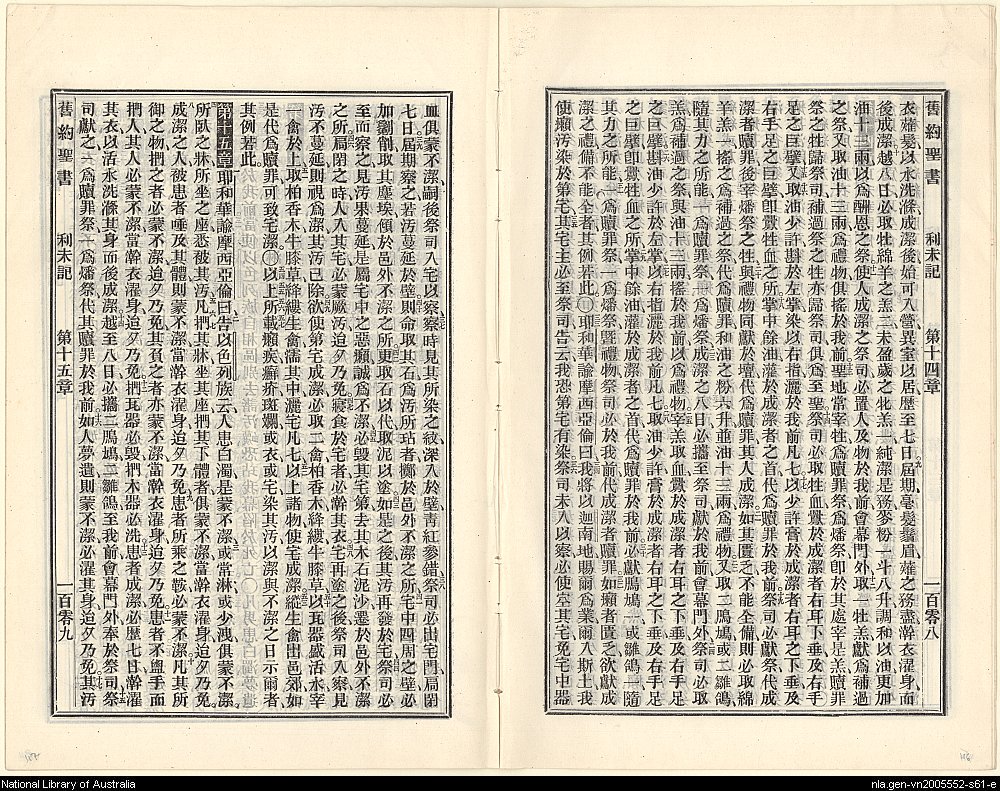 舊約聖書 利未記 第十四章 一百零八
衣薙髮以水洗滌成潔後始可入營異室以居歷至七日屆期毫髮鬚眉薙之務盡澣衣濯身而
後成潔越八日必取牡綿羊之羔二未盈歲之牝羔一純潔是務麥粉一斗八升調和以油更加
油十三兩以爲酬恩之祭使人成潔之祭司必置人及物於我前會幕門外取一牡羔獻爲補過
之祭又取油十三兩爲禮物俱搖於我前聖地當宰牲爲贖罪祭爲燔祭卽於其處宰是羔贖罪
祭之牲歸祭司補過祭之牲亦歸祭司俱爲至聖祭司必取牲血釁於成潔者右耳下垂及右手
足之巨擘又取油少許斟於左掌染以右指灑於我前凡七以少許膏於成潔者右耳之下垂及
右手足之巨擘卽釁牲血之所掌中餘油灌於成潔者之首代爲贖罪於我前祭司必獻祭代成
潔者贖罪後宰燔祭之牲與禮物同獻於壇代爲贖罪其人成潔如其匱乏不能全備則必取綿
羊羔一搖之爲補過之祭代爲贖罪和油之粉六升並油十三兩爲禮物又取二鳲鳩或二雛鴿
隨其力之所能一爲贖罪祭一爲燔祭成潔之八日必攜至祭司獻於我前會幕門外祭司必取
羔爲補過之祭與油十三兩搖於我前以爲禮物宰羔取血釁於成潔者右耳之下垂及右手足
之巨擘斟油少許於左掌以右指灑於我前凡七取油少許膏於成潔者右耳之下垂及右手足
之巨擘卽釁牲血之所掌中餘油灌於成潔者之首代爲贖罪於我前必獻鳲鳩一或雛鴿一隨
其力之所能一爲贖罪祭一爲燔祭暨禮物祭司代成潔者贖罪如癩者匱乏欲獻成
潔之禮備不能全者其例若此○耶和華諭摩西亞倫曰我將以迦南地賜爾爲業爾入斯土我
使癩汚染於第宅其宅主必至祭司告云我恐第宅有染祭司未入以察必使空其宅免宅中器
舊約聖書 利未記 第十五章 一百零九
皿俱蒙不潔嗣後祭司入宅以察察時見其所染之紋深入於壁靑紅參錯祭司必出宅門扃閉
七日屆期察之若汚蔓延於壁則命取其石爲汚所玷者擲於邑外不潔之所宅中四周之壁必
加剷削取其塵埃傾於邑外不潔之所更取石以代取泥以塗如是之後其汚再發於宅祭司必
至而察之見汚果蔓延是屬宅中之惡癩誠爲不潔必毀其宅第去其木石泥沙遷於邑外不潔
之所扃閉之時人入其宅必蒙厥汚迨夕乃免寢食於宅者必澣其衣宅再塗之後祭司入察見
汚不蔓延則視爲潔其汚已除欲使第宅成潔必取二禽柏香木絳縷牛膝草以瓦器盛活水宰
一禽於上取柏香木牛膝草絳縷生禽濡其中灑宅凡七以上諸物使宅成潔縱生禽出邑郊如
是代爲贖罪可致宅潔○以上所載癩疾癬疥斑斕或衣或宅染其汚以潔與不潔之日示爾者
其例若此
第十五章耶和華諭摩西亞倫曰告以色列族云人患白濁是蒙不潔或常淋或少洩俱蒙不潔
所臥之牀所坐之座悉被其汚凡捫其牀坐其座捫其下體者俱蒙不潔當澣衣濯身迨夕乃免
成潔之人被患者唾及其體則蒙不潔當澣衣濯身迨夕乃免患者所乘之鞍必蒙不潔凡其所
御之物捫之者必蒙不潔迨夕乃免其負之者亦蒙不潔當澣衣濯身迨夕乃免患者不盥手而
捫人其人必蒙不潔當澣衣濯身迨夕乃免捫瓦器必毀捫木器必洗患者成潔必歷七日澣濯
其衣以活水洗滌其身而後成潔越至八日必攜二鳲鳩二雛鴿至我前會幕門外奉於祭司祭
司獻之一爲贖罪祭一爲燔祭代其贖罪於我前如人夢遺則蒙不潔必濯其身迨夕乃免其汚
National Library of Australia
nla.gen-vn2005552-s61-e